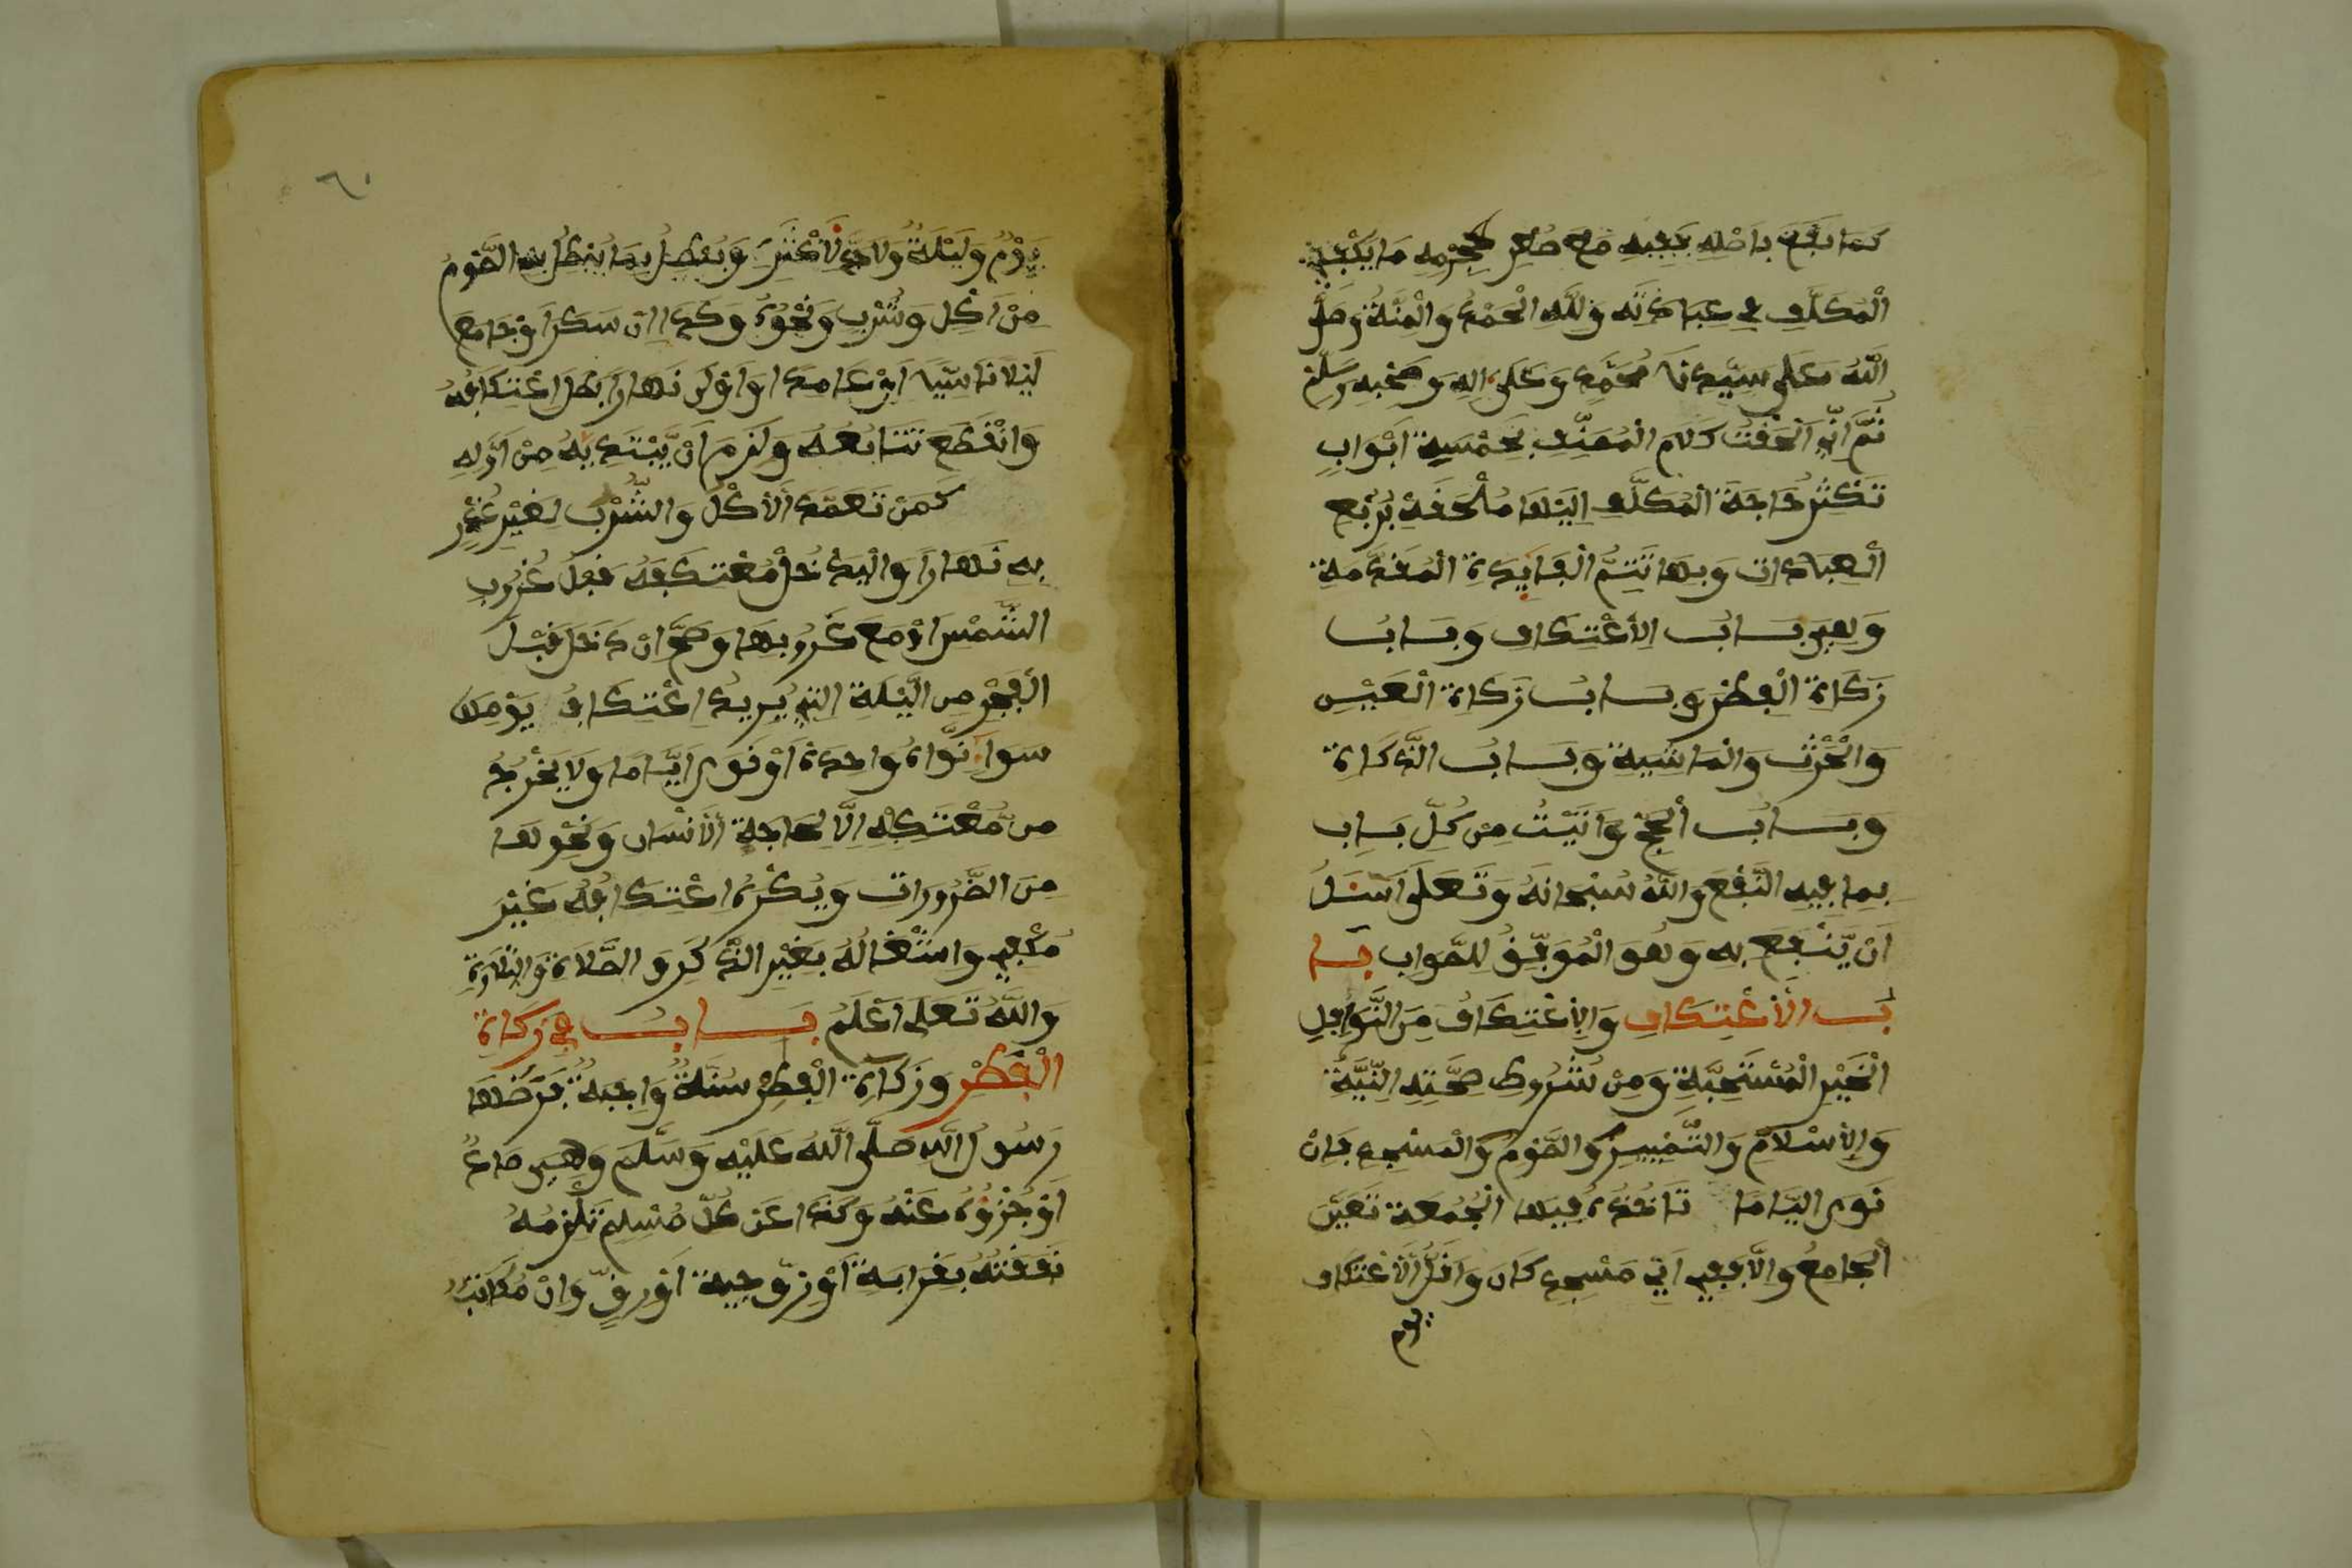 كما نفع باصله بجميعه مع صغر حجمه ما يكفي
المكلف في عباداته ولله الحمد والمنة وصلى
الله على سيدنا محمد وعلى اله وصحبه وسلم
ثم اني الحقت كلام المصنف بخمسة ابواب
تكثر حاجة المكلف اليها ملحقة بربع
العبادات وبها تتم الفايدة المقدمة
وهي باب الاعتكاف وباب
زكاة الفطر وباب زكاة العين
والحرث والماشية وباب الذكاة
وباب الحج واتيت من كل باب
بما فيه النفع والله سبحانه وتعلى اسئل
ان ينفع به وهو الموفق للصواب با
ب الاعتكاف والاعتكاف من النوافل
الخير المستحبة ومن شروط صحته النية
والاسلام والتمييز والصوم والمسجد فان
نوى اياما تاخذه فيها الجمعة تعين
الجامع والا ففي اي مسجد كان واقل الاعتكاف
يوم
٦٠
يوم وليلة ولا حد لاكثره ويبطل بما يبطل به الصوم
من اكل وشرب ونحوه وكذا ان سكر او جامع
ليلا ناسيا او عامدا او اول نهارا بطل اعتكافه
وانقطع تتابعه ولزم ان يبتديه من اوله
كمن تعمد الاكل والشرب لغير عذر
به نهارا واليدخل معتكفه قبل غروب
الشمس او مع غروبها وصح ان دخل قبل
الفجر من الليلة التي يريد اعتكاف يومها
سواء نواه واحدة او نوى اياما ولا يخرج
من معتكفه الا لحاجة الانسان ونحولها
من الضرورات ويكره اعتكافه غير
مكفي واشتغاله بغير الذكر و الصلاة والتلاوة
والله تعلى اعلم باب في زكاة
الفطر وزكاة الفطر سنة واجبة فرضها
رسول الله صلى الله عليه وسلم وهي صاع
او جزؤه عنه وكذا عن كل مسلم تلزمه
نفقته بقرابة او زوجية او رق وان مكاتبا